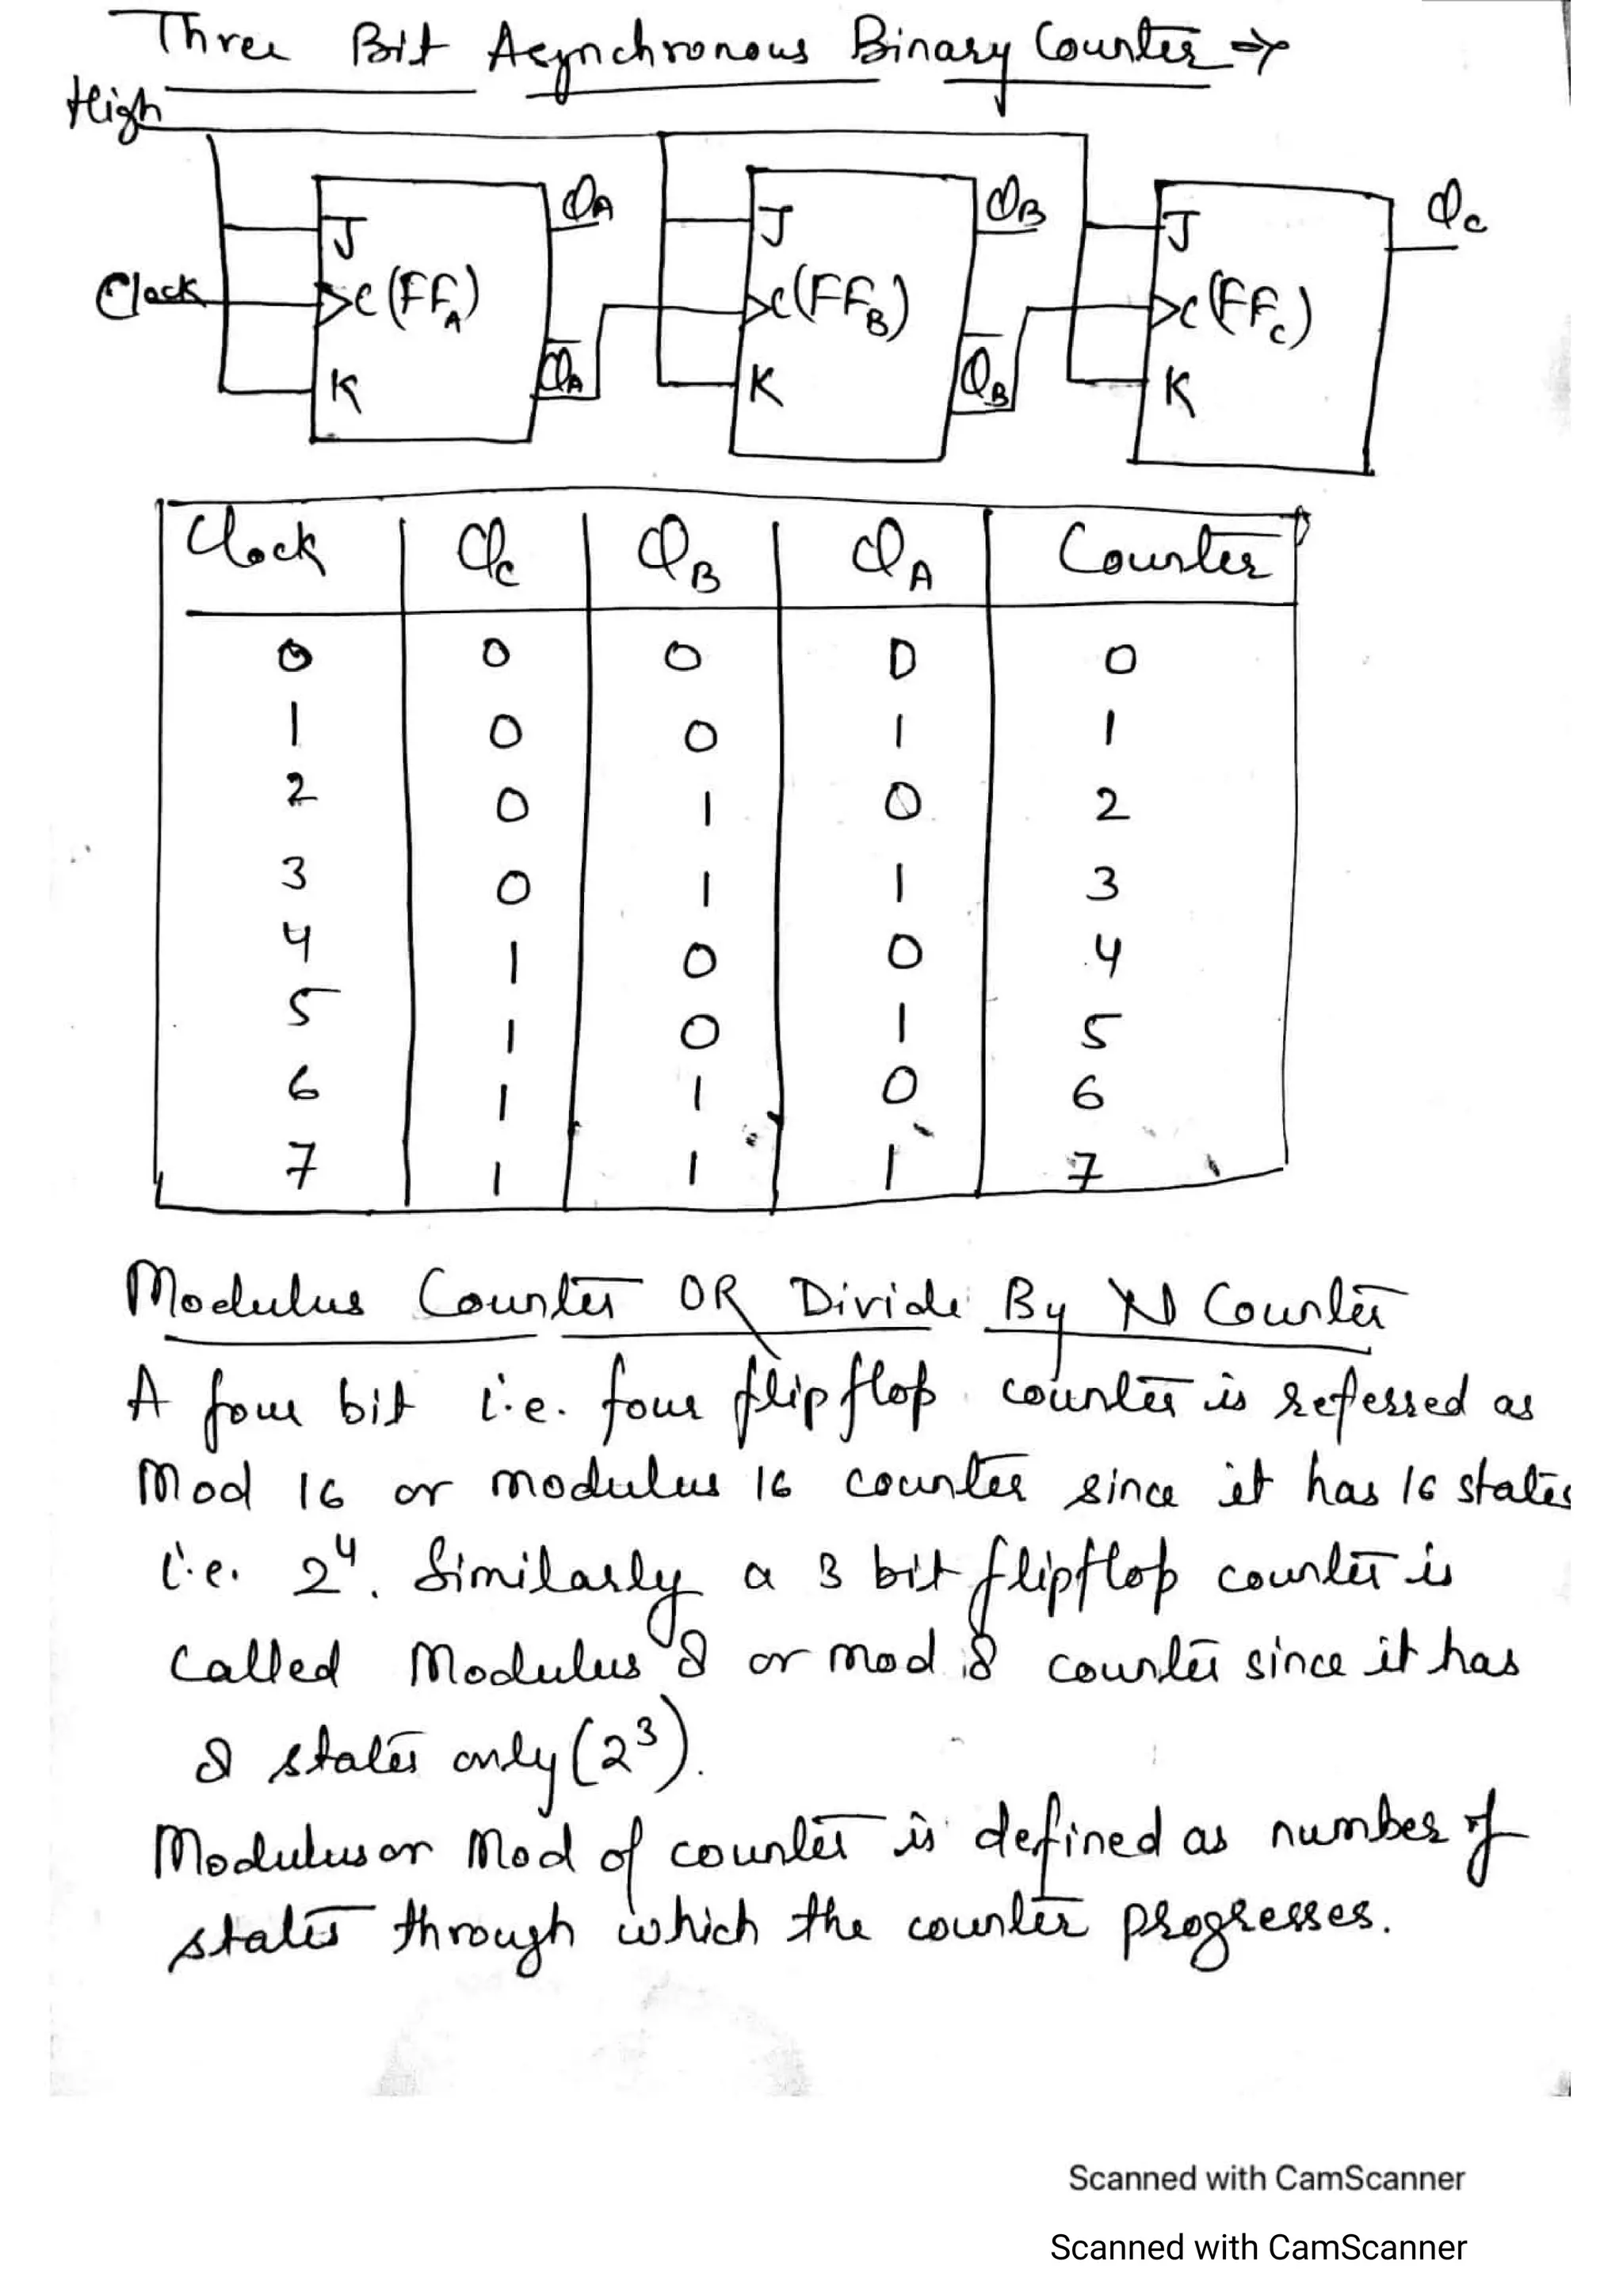 Three Bit Asynchronous Binary Counter ⇒
High
J
Clock
C (FFA)
K
QA
Q̅A
J
C (FFB)
K
QB
Q̅B
J
C (FFC)
K
QC
Clock QC QB QA Counter
0 0 0 0 0
1 0 0 1 1
2 0 1 0 2
3 0 1 1 3
4 1 0 0 4
5 1 0 1 5
6 1 1 0 6
7 1 1 1 7
Modulus Counter OR Divide By N Counter
A four bit i.e. four flip flop counter is referred as
Mod 16 or modulus 16 counter since it has 16 states
i.e. 2⁴. Similarly a 3 bit flipflop counter is
called Modulus 8 or mod 8 counter since it has
8 states only (2³).
Modulus or Mod of counter is defined as number of
states through which the counter progresses.
Scanned with CamScanner
Scanned with CamScanner